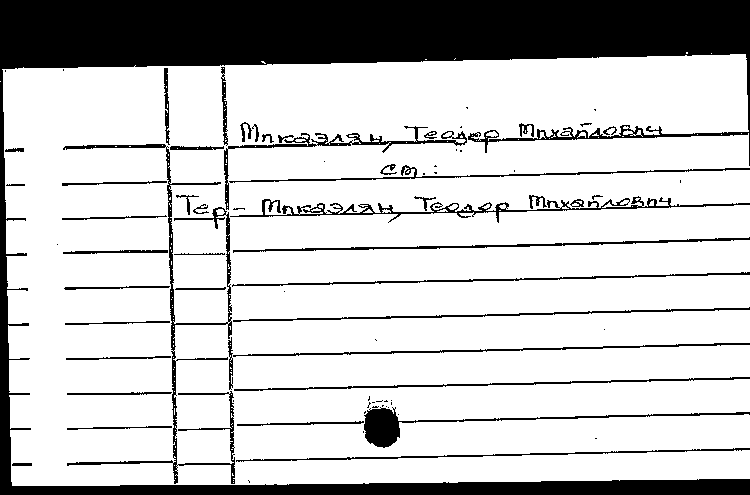 Микаэлян, Теодор Михайлович
см.:
Тер-Микаэлян, Теодор Михайлович